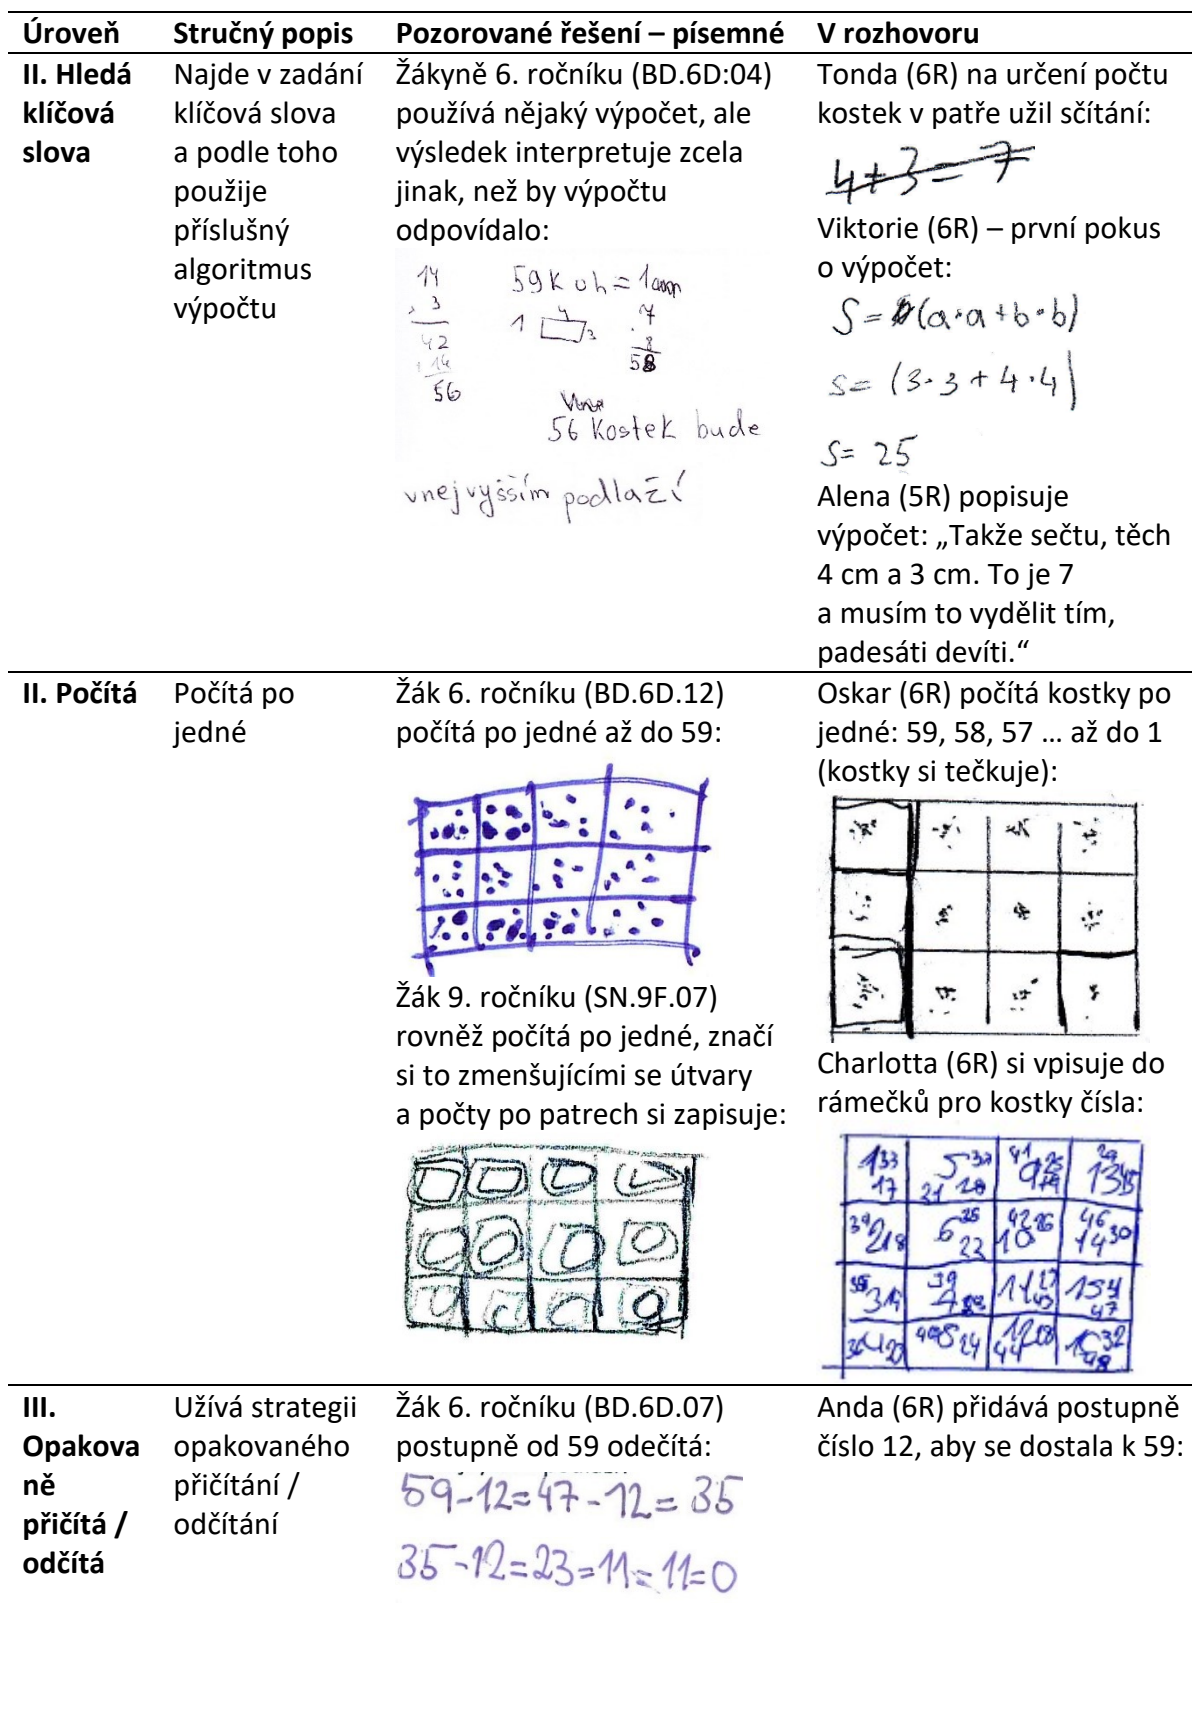 Úroveň Stručný popis Pozorované řešení – písemné V rozhovoru
II. Hledá
klíčová
slova
Najde v zadání
klíčová slova
a podle toho
použije
příslušný
algoritmus
výpočtu
Žákyně 6. ročníku (BD.6D:04)
používá nějaký výpočet, ale
výsledek interpretuje zcela
jinak, než by výpočtu
odpovídalo:
14
3
42
14
56
59K
1
4
3
7
8
58
56 Kostek bude
vnejvyšším podlaží
Tonda (6R) na určení počtu
kostek v patře užil sčítání:
4+3=7
Viktorie (6R) – první pokus
o výpočet:
S=(a·a+b·b)
S=(3·3+4·4)
S= 25
Alena (5R) popisuje
výpočet: „Takže sečtu, těch
4 cm a 3 cm. To je 7
a musím to vydělit tím,
padesáti devíti.“
II. Počítá
Počítá po
jedné
Žák 6. ročníku (BD.6D.12)
počítá po jedné až do 59:
Žák 9. ročníku (SN.9F.07)
rovněž počítá po jedné, značí
si to zmenšujícími se útvary
a počty po patrech si zapisuje:
Oskar (6R) počítá kostky po
jedné: 59, 58, 57 … až do 1
(kostky si tečkuje):
Charlotta (6R) si vpisuje do
rámečků pro kostky čísla:
III.
Opakova
ně
přičítá /
odčítá
Užívá strategii
opakovaného
přičítání /
odčítání
Žák 6. ročníku (BD.6D.07)
postupně od 59 odečítá:
59-12=47-12=35
35-12=23=11=11=0
Anda (6R) přidává postupně
číslo 12, aby se dostala k 59: